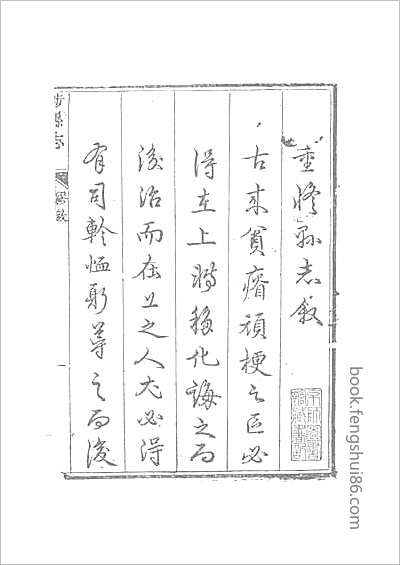 重修縣志叙
古来貧瘠頑梗之區必
得在上潜移化誨之而
後治而在上之人尤必得
有司軫恤躬導之而後
縣志
book.fengshui86.com